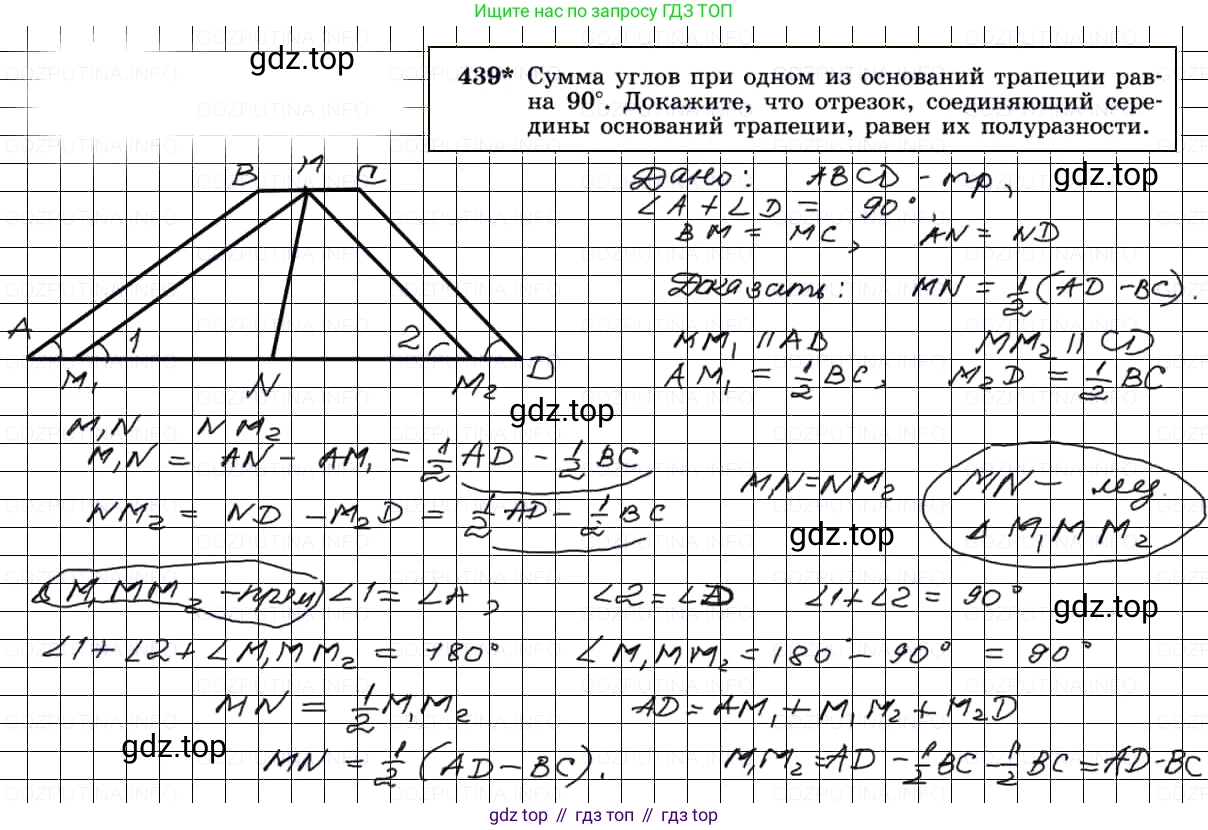 Ищите нас по запросу ГДЗ ТОП
gdz.top
439* Сумма углов при одном из оснований трапеции рав-
на 90°. Докажите, что отрезок, соединяющий сере-
дины оснований трапеции, равен их полуразности.
B M C
A 1 2 D
M₁ N M₂
Дано: ABCD - тр,
gdz.top
∠A + ∠D = 90°,
BM = MC, AN = ND
Доказать: MN = 1/2 (AD - BC).
MM₁ || AB MM₂ || CD
AM₁ = 1/2 BC, M₂D = 1/2 BC
gdz.top
M₁N NM₂
M₁N = AN - AM₁ = 1/2 AD - 1/2 BC
NM₂ = ND - M₂D = 1/2 AD - 1/2 BC
M₁N = NM₂
MN - мед.
Δ M₁MM₂
gdz.top
Δ M₁MM₂ - прям) ∠1 = ∠A, ∠2 = ∠D ∠1 + ∠2 = 90°
gdz.top
∠1 + ∠2 + ∠M₁MM₂ = 180° ∠M₁MM₂ = 180 - 90° = 90°
MN = 1/2 M₁M₂ AD = AM₁ + M₁M₂ + M₂D
gdz.top
MN = 1/2 (AD - BC). M₁M₂ = AD - 1/2 BC - 1/2 BC = AD - BC
gdz top // гдз топ // gdz top